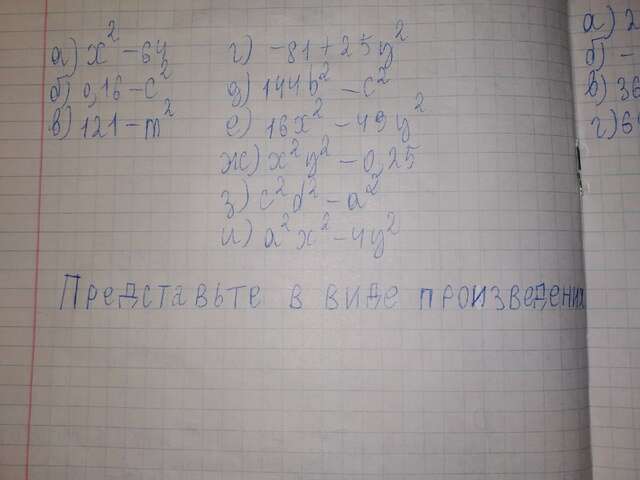 а) x² − 64
б) 0,16 − c²
в) 121 − m²
г) −81 + 25y²
д) 144b² − c²
е) 16x² − 49y²
ж) x²y² − 0,25
з) c²d² − a²
и) a²x² − 4y²
Представьте в виде произведения
а) 2
б) −
в) 36
г) 6